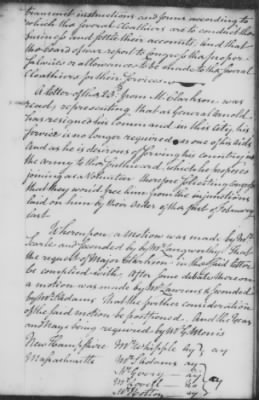 transmit instructions and forms according to
which the several Cloathiers are to conduct their
business and settle their accounts, and that
the board of war report to Congress the proper
Salaries or allowances to be made to the several
Cloathiers for their services.
A letter of the 23d from M Clarkson was
read, representing that as General Arnold
has resigned his command in this city, his
service is no longer required as one of his aids
And as he is desirous of serving his country in
the army to the Southward, which he proposes
joining as a Volunteer therefore solliciting congress
that they would free him from the injunctions
laid on him by their order of the first of February
last.
Whereupon a motion was made by Mr
Searle and seconded by Mr Langworthy That
the request of Major Clarkson in the said letter
be complied with. After some debate thereon
a motion was made by Mr Laurens & seconded
by Mr S Adams That the further consideration
of the said motion be postponed. And the Yeas
and Nays being required by Mr G Morris
New Hampshire Mr Whipple ay } ay
Massachusetts Mr S Adams ay
Mr Gerry ay
Mr Lovell ay } ay
Mr Holten ay